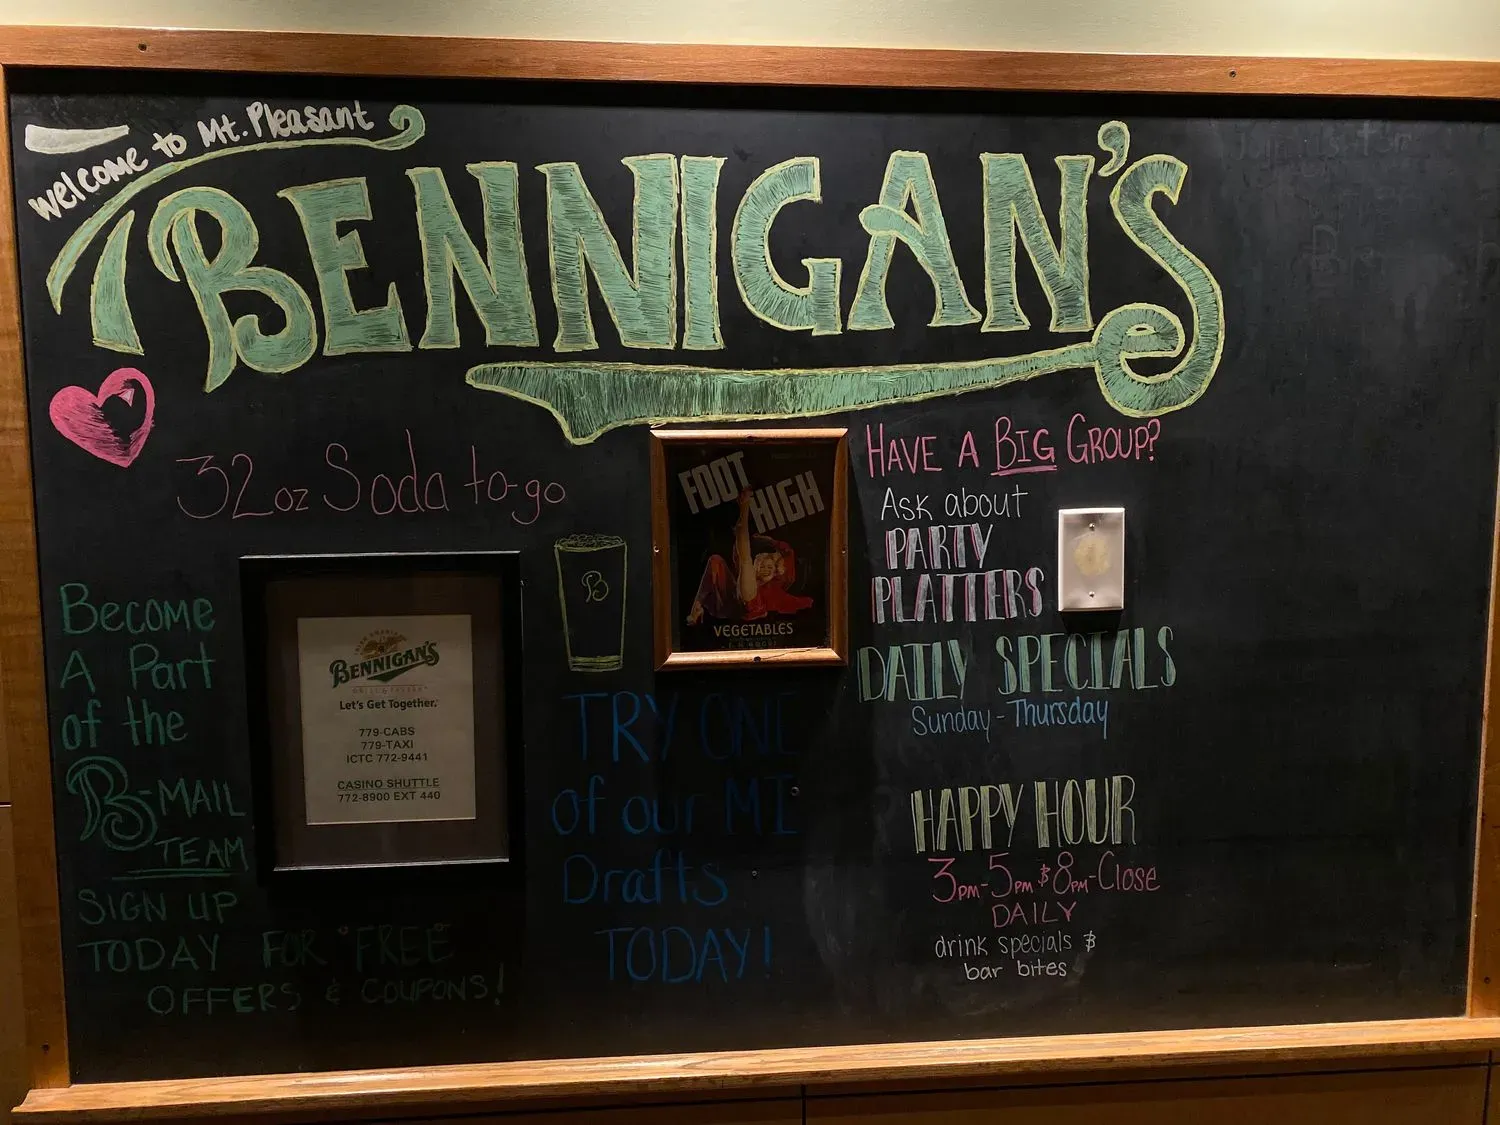 Welcome to Mt. Pleasant
BENNIGAN'S
32oz Soda to-go
Become
A Part
of the
B-MAIL
TEAM
SIGN UP
TODAY FOR "FREE"
OFFERS & COUPONS!
BENNIGAN'S
GRILL & TAVERN
Let's Get Together.
779-CABS
779-TAXI
ICTC 772-9441
CASINO SHUTTLE
772-8900 EXT 440
B
FOOT
HIGH
VEGETABLES
TRY ONE
of our MI
Drafts
TODAY!
HAVE A BIG GROUP?
Ask about
PARTY
PLATTERS
DAILY SPECIALS
Sunday-Thursday
HAPPY HOUR
3PM-5PM & 8PM-Close
DAILY
drink specials &
bar bites